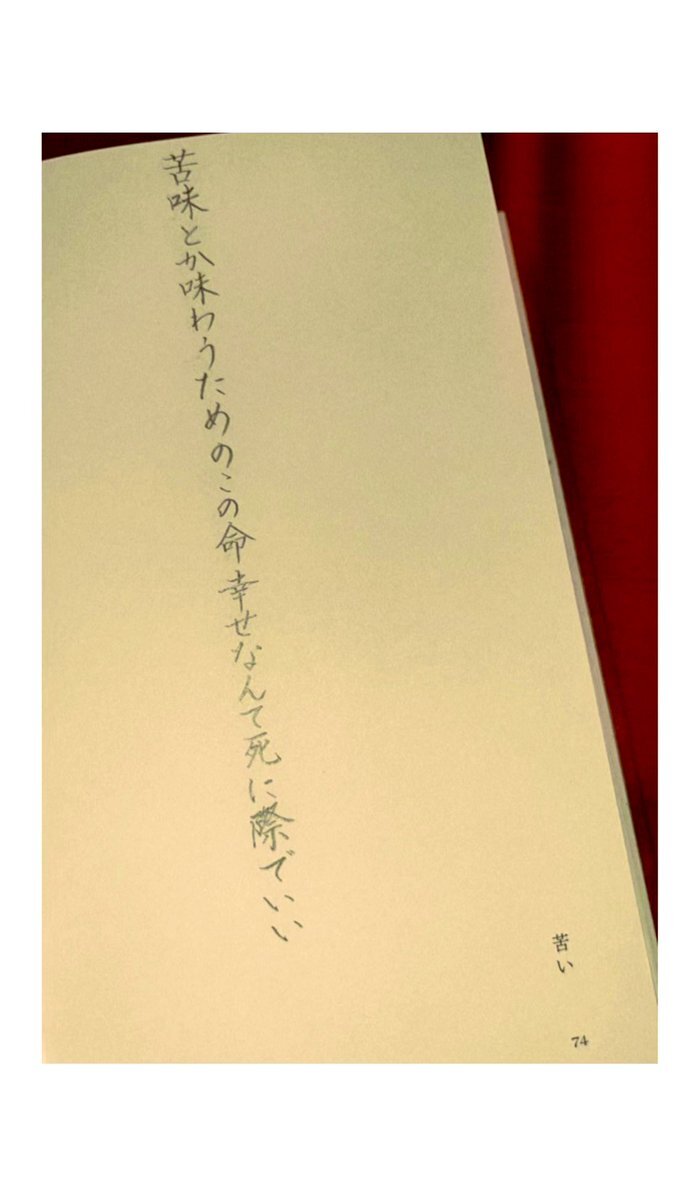 苦味とか味わうためのこの命幸せなんて死に際でいい
苦い
74